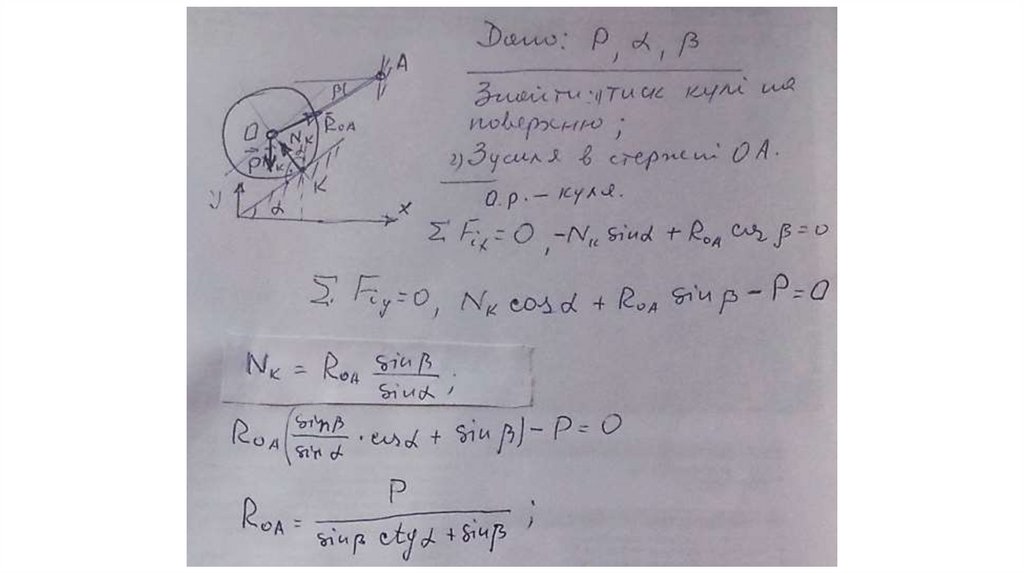 Дано: P, α, β
Знайти: 1) тиск кулі на
поверхню;
2) Зусилля в стержені OA.
О.р. – куля.
A
β
O
R̄OA
NK
P̄
α
K
y
α
x
Σ Fix = 0, -NK sinα + ROA cos β = 0
Σ Fiy = 0, NK cosα + ROA sinβ - P = 0
NK = ROA sinβ / sinα ;
ROA (sinβ / sinα · cosα + sinβ) - P = 0
ROA = P / (sinβ ctgα + sinβ) ;